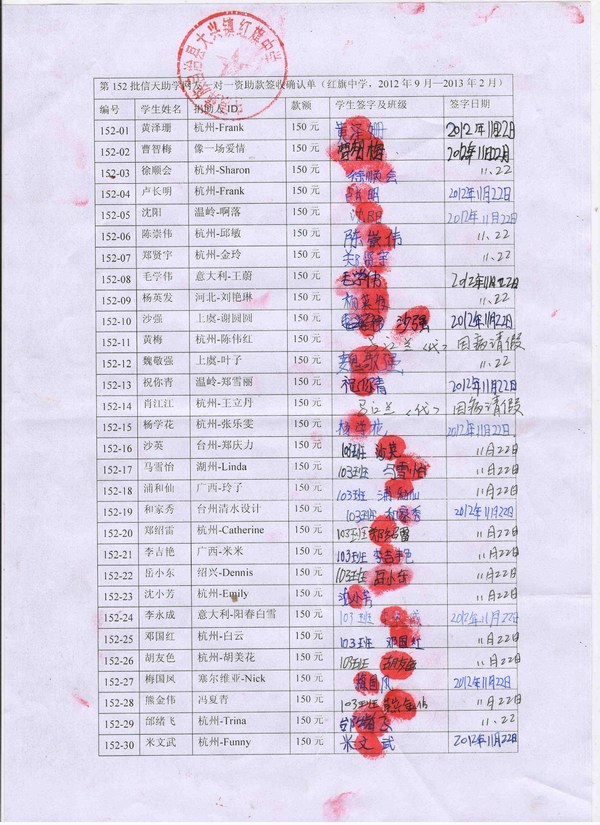 大兴镇红旗中学
第 152 批信天助学网友一对一资助款签收确认单（红旗中学，2012 年 9 月—2013 年 2 月）
编号 学生姓名 捐助友 ID 款额 学生签字及班级 签字日期
152-01 黄泽珊 杭州-Frank 150 元 黄泽珊 2012年11月22日
152-02 曹智梅 像一场爱情 150 元 曹智梅 2012年11月22日
152-03 徐顺会 杭州-Sharon 150 元 徐顺会 11.22
152-04 卢长明 杭州-Frank 150 元 卢长明 2012年11月22日
152-05 沈阳 温岭-啊落 150 元 沈阳 2012年11月22日
152-06 陈崇伟 杭州-邱敏 150 元 陈崇伟 11.22
152-07 郑贤宇 杭州-金玲 150 元 郑贤宇 11.22
152-08 毛学伟 意大利-王蔚 150 元 毛学伟 2012年11月22日
152-09 杨英发 河北-刘艳琳 150 元 杨英发 11.22
152-10 沙强 上虞-谢圆圆 150 元 沙强 2012年11月22日
152-11 黄梅 杭州-陈伟红 150 元 兰（代） 因病请假
152-12 魏敬强 上虞-叶子 150 元 魏敬强 11.22
152-13 祝你青 温岭-郑雪丽 150 元 祝你青 2012年11月22日
152-14 肖江江 杭州-王立丹 150 元 兰（代） 因病请假
152-15 杨学花 杭州-张乐雯 150 元 杨学花 2012年11月22日
152-16 沙英 台州-郑庆力 150 元 103班 沙英 11月22日
152-17 马雪怡 湖州-Linda 150 元 103班 马雪怡 11月22日
152-18 浦和仙 广西-玲子 150 元 103班 浦和仙 11月22日
152-19 和家秀 台州清水设计 150 元 103班 和家秀 2012年11月22日
152-20 郑绍雷 杭州-Catherine 150 元 103班 郑绍雷 11月22日
152-21 李吉艳 广西-米米 150 元 103班 李吉艳 11月22日
152-22 岳小东 绍兴-Dennis 150 元 103班 岳小东 11月22日
152-23 沈小芳 杭州-Emily 150 元 沈小芳 11月22日
152-24 李永成 意大利-阳春白雪 150 元 103班 2012年11月22日
152-25 邓国红 杭州-白云 150 元 103班 邓国红 11月22日
152-26 胡友色 杭州-胡美花 150 元 103班 胡友色 11月22日
152-27 梅国凤 塞尔维亚-Nick 150 元 梅国凤 2012年11月22日
152-28 熊金伟 冯夏青 150 元 103班 11月22日
152-29 邰绪飞 杭州-Trina 150 元 邰绪飞 11.22
152-30 米文武 杭州-Funny 150 元 米文武 2012年11月22日